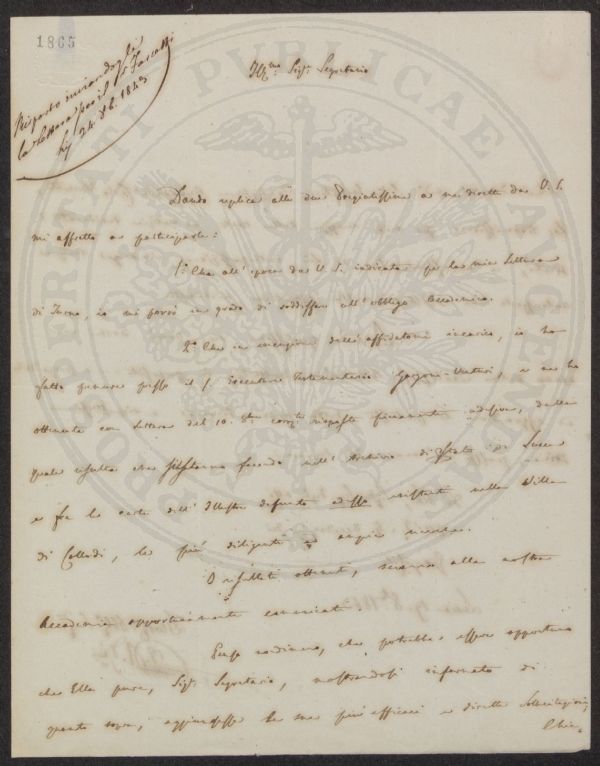 1865
Risposto inviandogli
la lettera per il Sr. Tarcetti
li 24 8b. 1843
Illma. Sigr. Segretario
Dando replica alle due Pregiatissime a me dirette da V. S.
mi affretto a parteciparle:
1.° Che all'epoca da V. S. indicata per la mia Lettura
di Turno, io mi porrò in grado di soddisfare all'obbligo Accademico.
2.° Che in esecuzione dell'affidatomi incarico, io ho
fatto premure presso il S. Esecutore Testamentario Garzoni-Venturi, e ne ho
ottenuta con lettera del 10. Stte. corrte. risposta pienamente adesiva, dalla
quale risulta che si stanno facendo nell'Archivio di Stato di Lucca
e fra le carte dell'Illustre defunto adesso esistenti nella Villa
di Collodi, le più diligenti ed ampie ricerche.
I risultati ottenuti, saranno alla nostra
Accademia opportunamente comunicati.
Penso nondimeno, che potrebbe essere opportuno
che Ella pure, Sigr. Segretario, mostrandosi informato di
quanto sopra, aggiungesse le sue più efficaci e dirette Sollecitazioni,